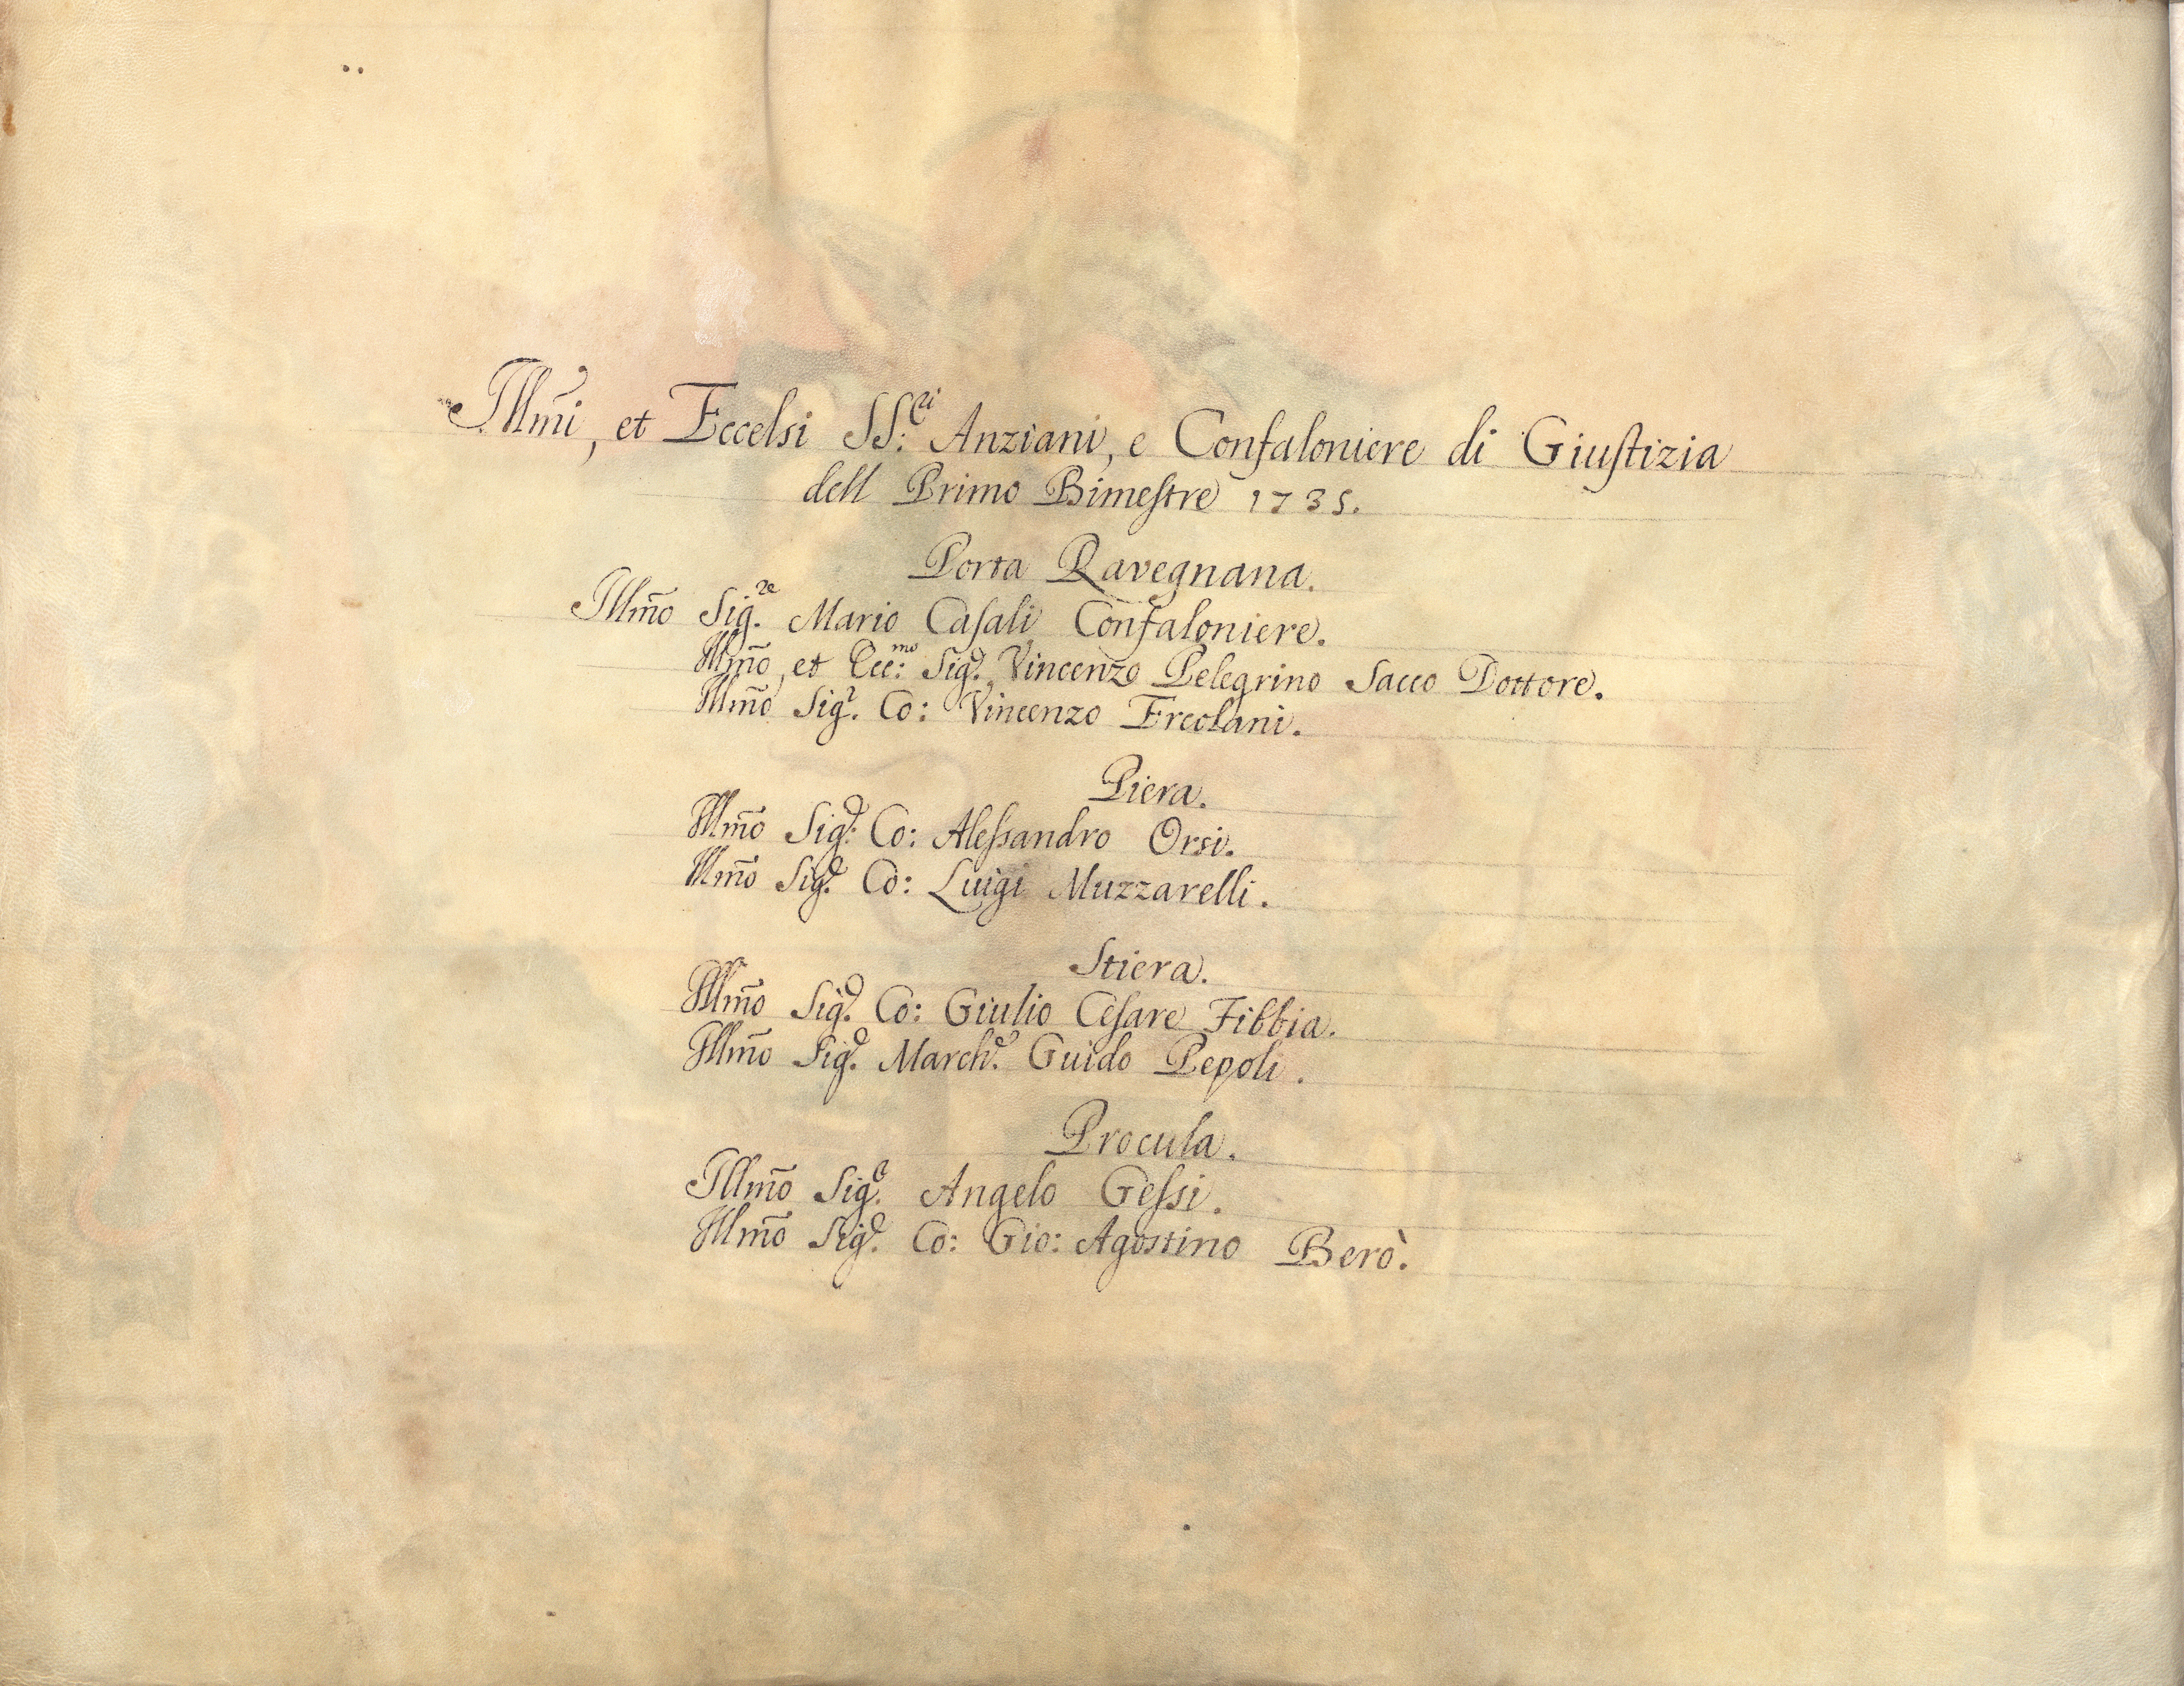 Illm̃i, et Eccelsi SS:ri Anziani, e Confaloniere di Giustizia
dell Primo Bimestre 1735.
Porta Ravegnana.
Illm̃o Sig.re Mario Casali Confaloniere.
Illm̃o, et Ecc:mo Sig.r Vincenzo Pelegrino Sacco Dottore.
Illm̃o Sig.r Co: Vincenzo Ercolani.
Piera.
Illm̃o Sig:r Co: Alessandro Orsi.
Illm̃o Sig.r Co: Luigi Muzzarelli.
Stiera.
Illm̃o Sig.r Co: Giulio Cesare Fibbia.
Illm̃o Sig.r March.e Guido Pepoli.
Procula.
Illm̃o Sig.r Angelo Gessi.
Illm̃o Sig.r Co: Gio: Agostino Berò.